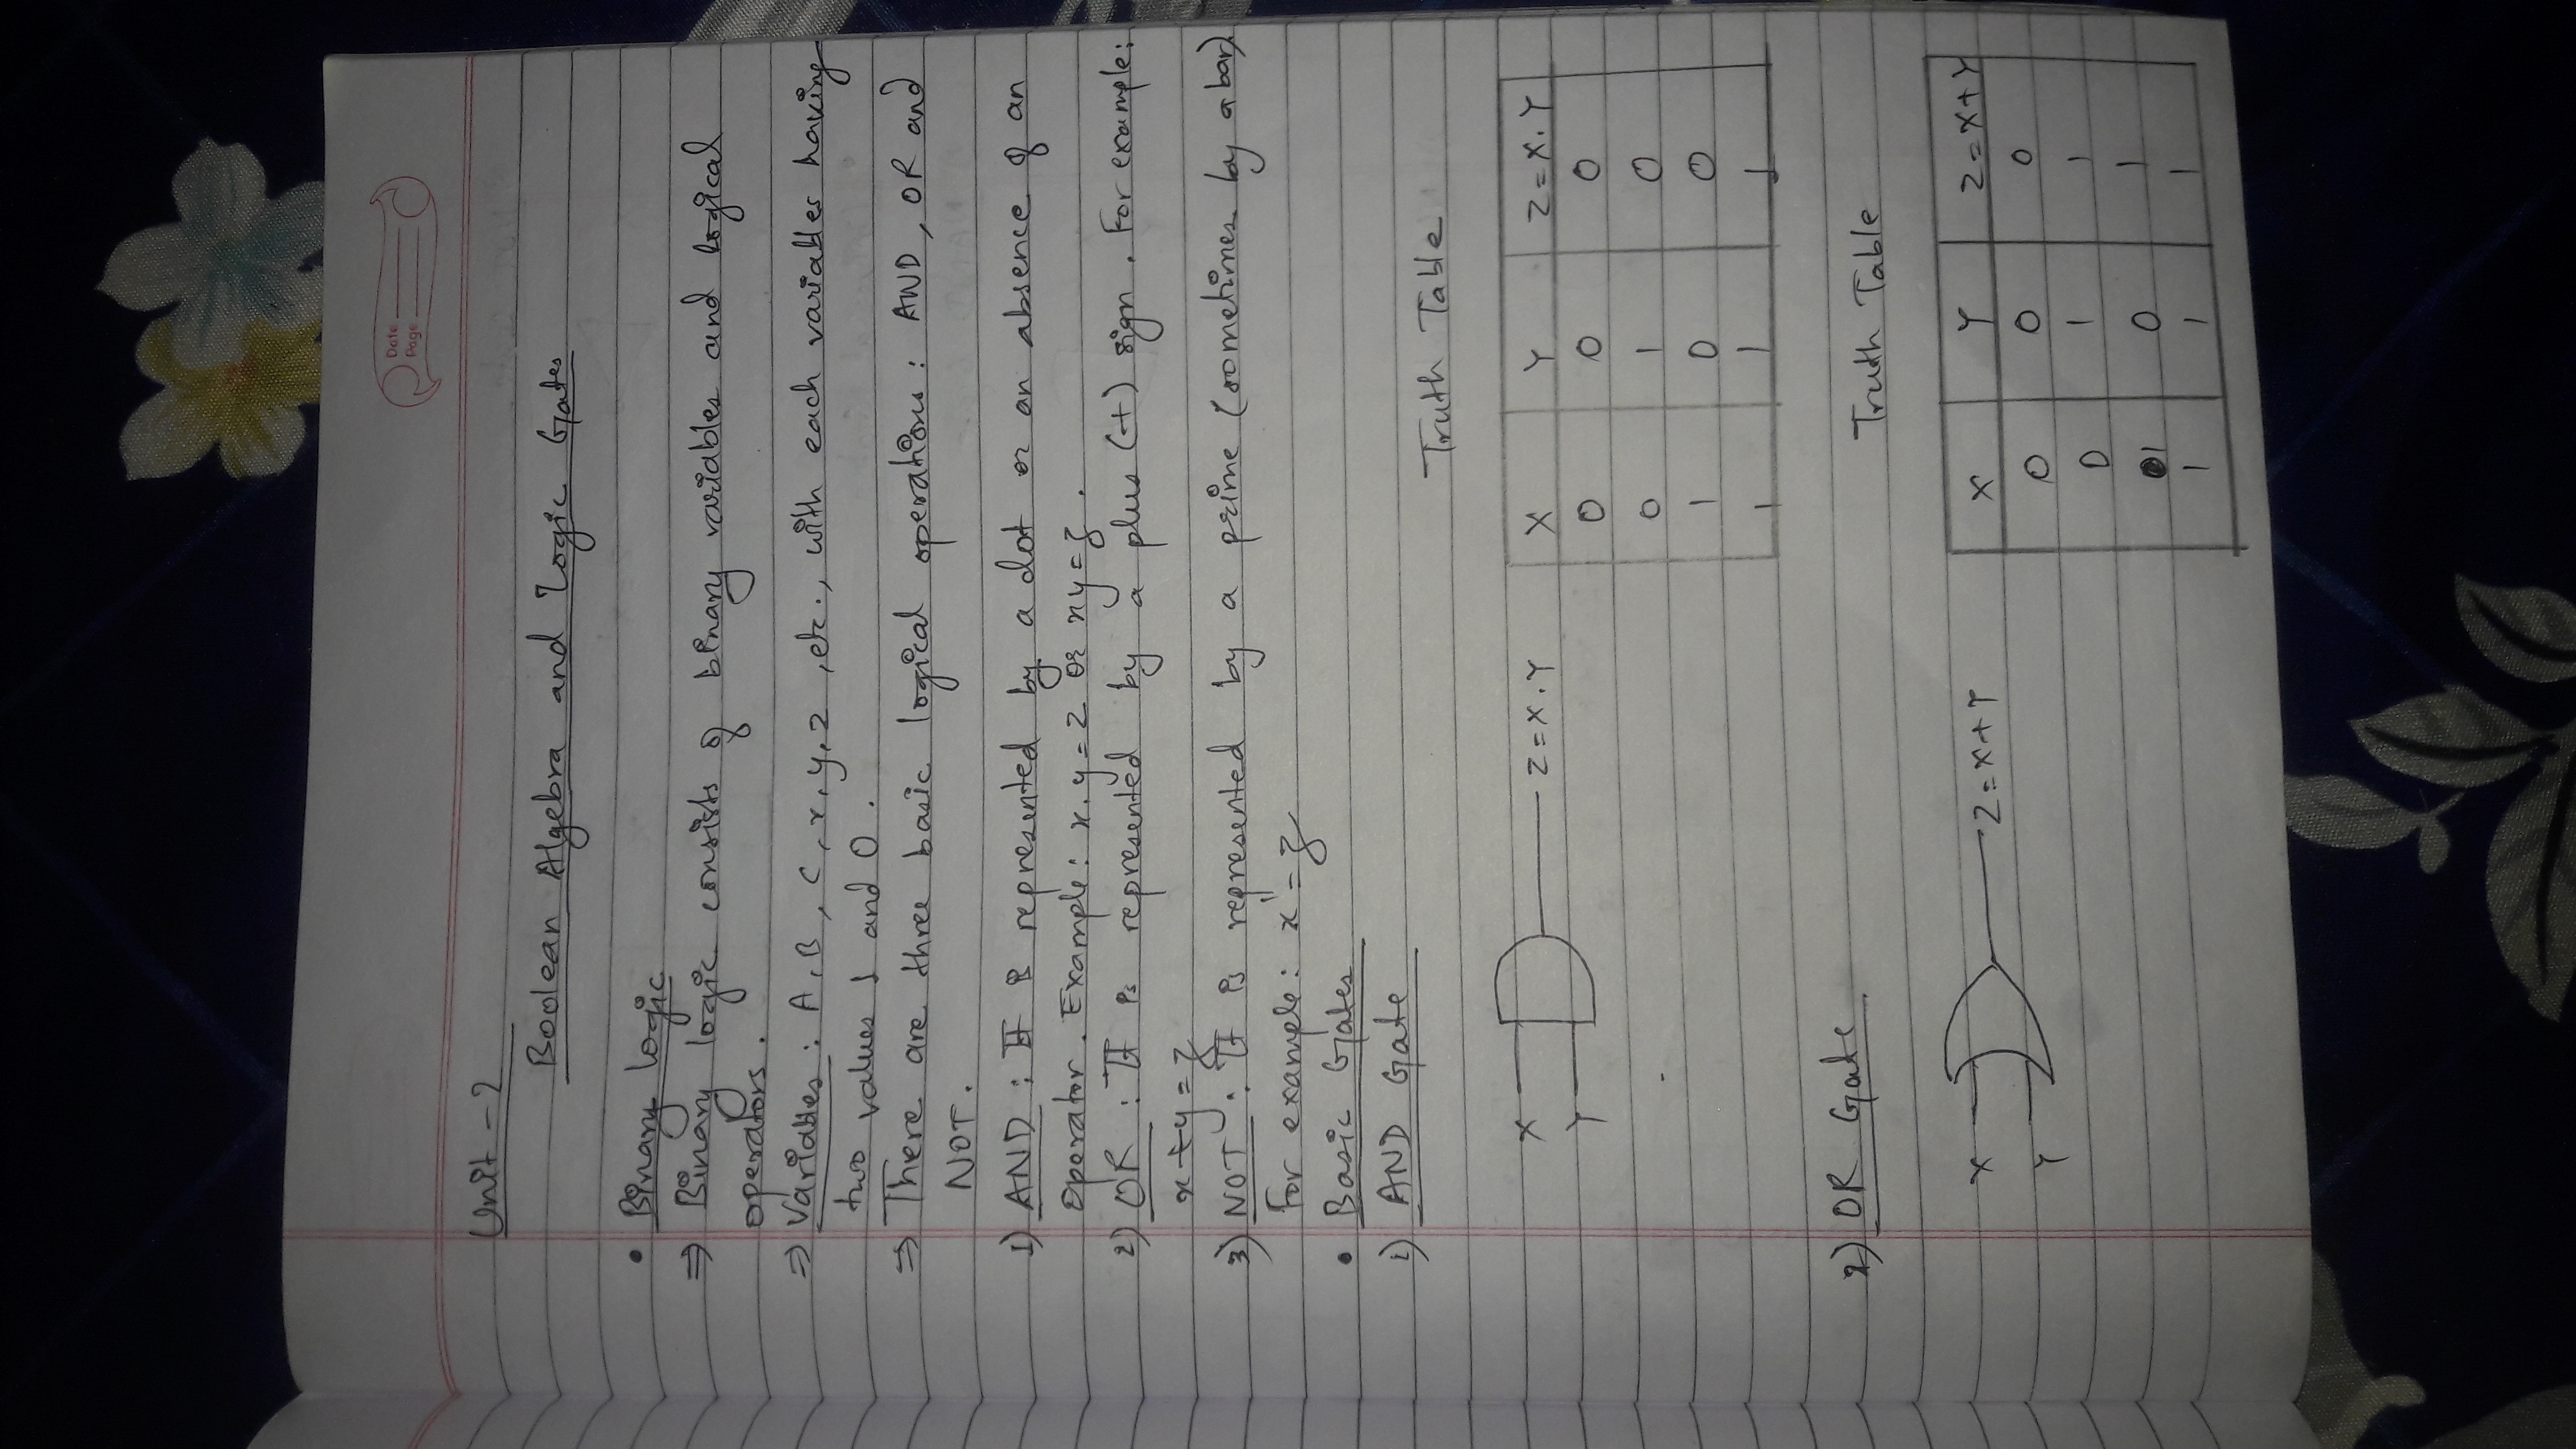 Date
Page
Unit - 2
Boolean Algebra and Logic Gates
• Binary logic
⇒ Binary logic consists of binary variables and logical
operators.
⇒ Variables : A, B, C, x, y, z, etc., with each variables having
two values 1 and 0.
⇒ There are three basic logical operations : AND, OR and
NOT.
1) AND : It is represented by a dot or an absence of an
operator. Example : x.y = z or xy = z.
2) OR : It is represented by a plus (+) sign. For example :
x + y = z
3) NOT : It is represented by a prime (sometimes by a bar)
For example : x' = z
• Basic Gates
1) AND Gate
Truth Table
X
Y
Z = X.Y
X Y Z = X.Y
0 0 0
0 1 0
1 0 0
1 1 1
2) OR Gate
Truth Table
X
Y
Z = X + Y
X Y Z = X + Y
0 0 0
0 1 1
1 0 1
1 1 1